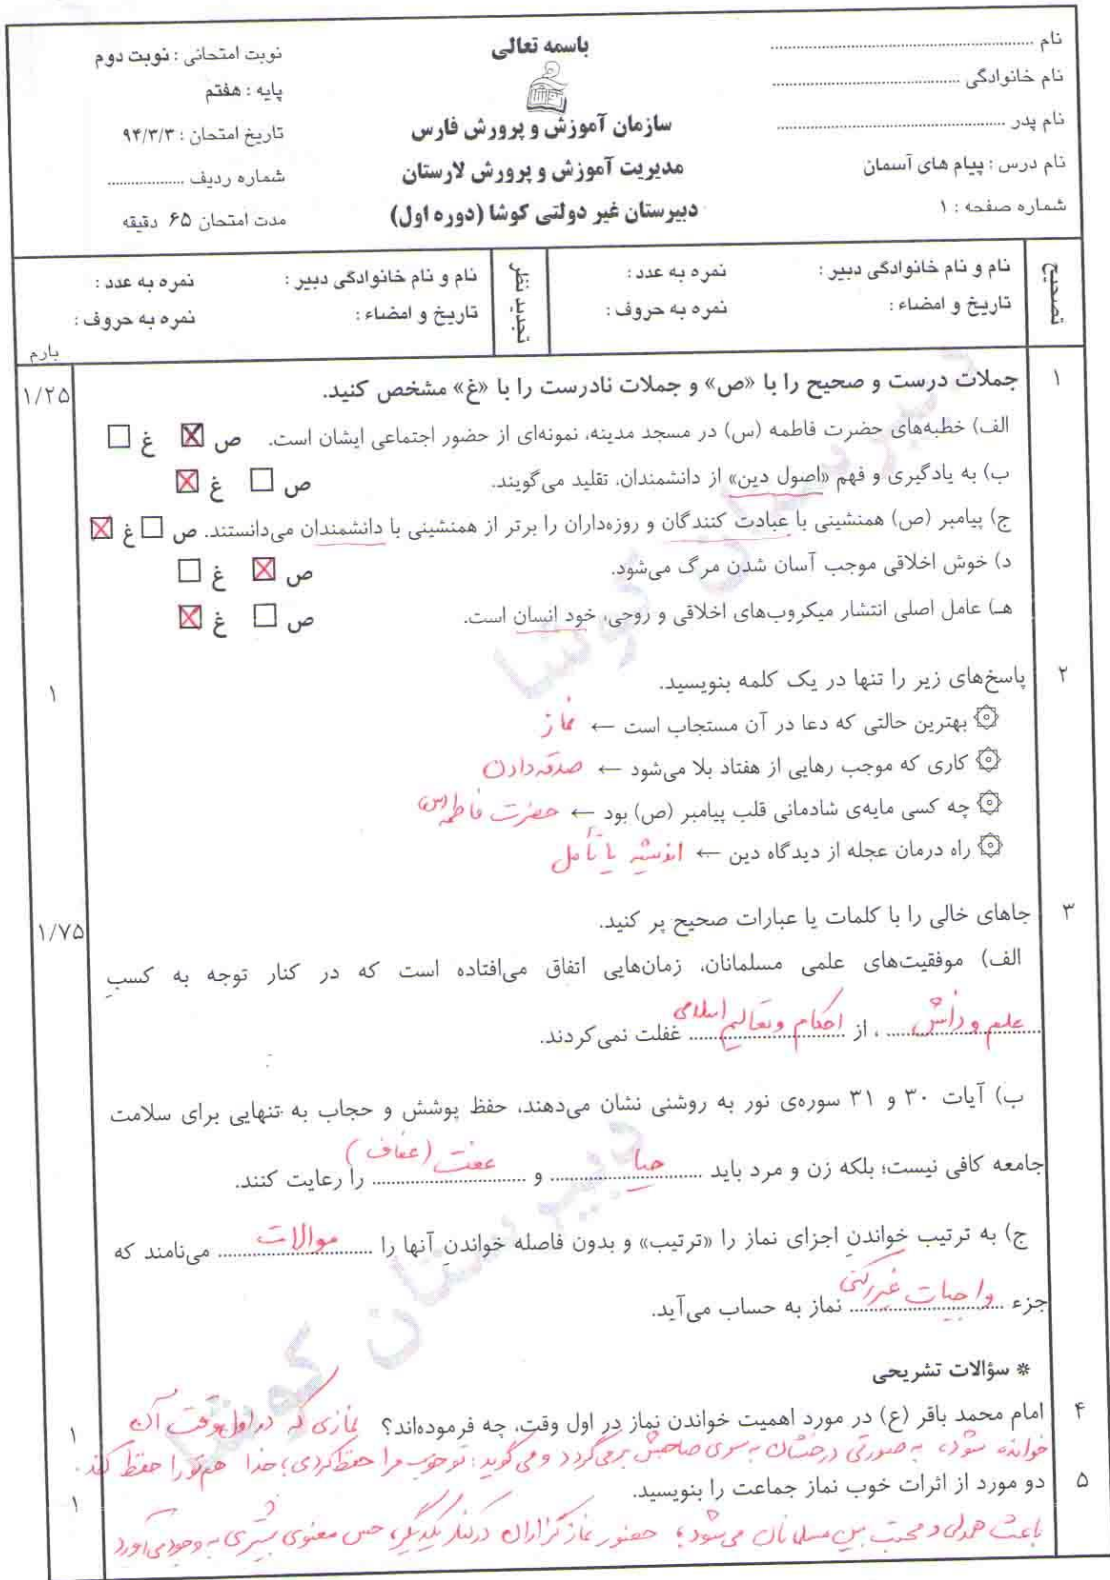 باسمه تعالی
نام ........
نام خانوادگی ........
نام پدر ........
نام درس : پیام های آسمان
شماره صفحه : ۱
سازمان آموزش و پرورش فارس
مدیریت آموزش و پرورش لارستان
دبیرستان غیر دولتی کوشا (دوره اول)
نوبت امتحانی : نوبت دوم
پایه : هفتم
تاریخ امتحان : ۹۴/۳/۳
شماره ردیف ........
مدت امتحان ۶۵ دقیقه
تصحیح
نام و نام خانوادگی دبیر : نمره به عدد :
تاریخ و امضاء : نمره به حروف :
تجدید نظر
نام و نام خانوادگی دبیر : نمره به عدد :
تاریخ و امضاء : نمره به حروف :
بارم
۱ جملات درست و صحیح را با «ص» و جملات نادرست را با «غ» مشخص کنید. ۱/۲۵
الف) خطبه‌های حضرت فاطمه (س) در مسجد مدینه، نمونه‌ای از حضور اجتماعی ایشان است. ص ☒ غ ☐
ب) به یادگیری و فهم «اصول دین» از دانشمندان، تقلید می‌گویند. ص ☐ غ ☒
ج) پیامبر (ص) همنشینی با عبادت کنندگان و روزه‌داران را برتر از همنشینی با دانشمندان می‌دانستند. ص ☐ غ ☒
د) خوش اخلاقی موجب آسان شدن مرگ می‌شود. ص ☒ غ ☐
هـ) عامل اصلی انتشار میکروب‌های اخلاقی و روحی، خود انسان است. ص ☐ غ ☒
۲ پاسخ‌های زیر را تنها در یک کلمه بنویسید. ۱
بهترین حالتی که دعا در آن مستجاب است ← نماز
کاری که موجب رهایی از هفتاد بلا می‌شود ← صدقه دادن
چه کسی مایه‌ی شادمانی قلب پیامبر (ص) بود ← حضرت فاطمه (س)
راه درمان عجله از دیدگاه دین ← اندیشه یا تأمل
۳ جاهای خالی را با کلمات یا عبارات صحیح پر کنید. ۱/۷۵
الف) موفقیت‌های علمی مسلمانان، زمان‌هایی اتفاق می‌افتاده است که در کنار توجه به کسبِ
علم و دانش ، از احکام وتعالیم اسلامی غفلت نمی‌کردند.
ب) آیات ۳۰ و ۳۱ سوره‌ی نور به روشنی نشان می‌دهند، حفظ پوشش و حجاب به تنهایی برای سلامت
جامعه کافی نیست؛ بلکه زن و مرد باید حیا و عفت (عفاف) را رعایت کنند.
ج) به ترتیب خواندنِ اجزای نماز را «ترتیب» و بدون فاصله خواندنِ آنها را موالات می‌نامند که
جزء واجبات غیررکنی نماز به حساب می‌آید.
* سؤالات تشریحی
۴ امام محمد باقر (ع) در مورد اهمیت خواندن نماز در اول وقت، چه فرموده‌اند؟ نمازی که در اول وقت آن ۱
خوانده شود، به صورتی درخشان به سوی صاحبش برمی‌گردد و می‌گوید: تو خوب مرا حفظ کردی؛ خدا هم تو را حفظ کند.
۵ دو مورد از اثرات خوب نماز جماعت را بنویسید. ۱
باعث همدلی و محبت بین مسلمانان می‌شود؛ حضور نمازگزاران در کنار یکدیگر، حس معنوی بیشتری به وجود می‌آورد
دبیرستان کوشا
دبیرستان کوشا